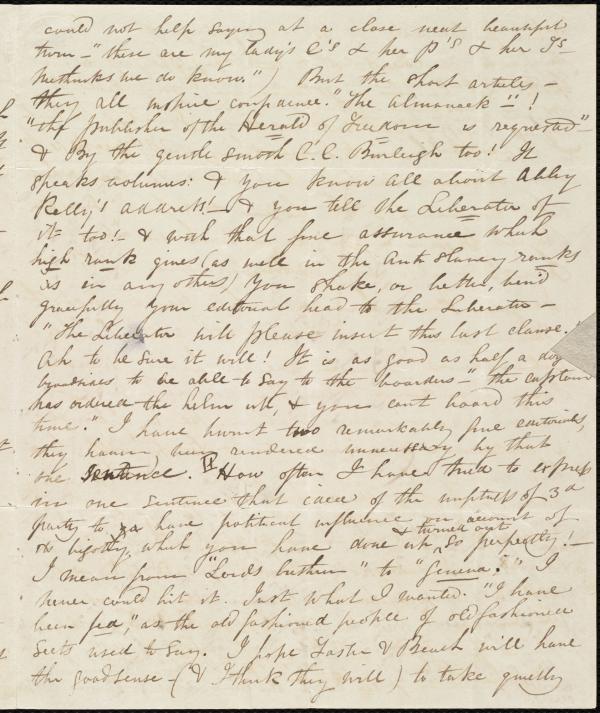 could not help saying at a close neat beautiful
turn—"these are my lady's C's & her P's & her Ts
methinks we do know.") But the short articles—
they all inspire confidence. "The Almanack"!
"the publisher of the Herald of Freedom is requested"
& By the gentle smooth C. C. Burleigh too! It
speaks volumes: & you know all about Abby
Kelly's address!—& you tell the Liberator of
it too!—& with that fine assurance which
high rank gives (as well in the Anti slavery ranks
as in any others) you shake, or better, bend
gracefully your editorial head to the Liberator—
"The Liberator will please insert this last clause.
Ah to be sure it will! It is as good as half a doz
broadsides to be able to say to the boarders—"the captain
has ordered the helm up, & you cant board this
time." I have burnt two remarkably fine editorials,
they having been rendered unnecessary by that
one sentence. How often I have tried to express
in one sentence that idea of the unfitness of 3d
party to have political influence on account of
bigotry, which you have done up & turned out so perfectly!—
I mean from "Lords brethren" to "Geneva." I
never could hit it. Just what I wanted. "I have
been fed," as the old fashioned people of old fashioned
sects used to say. I hope & Beach will have
the good sense—(& I think they will) to take quietly